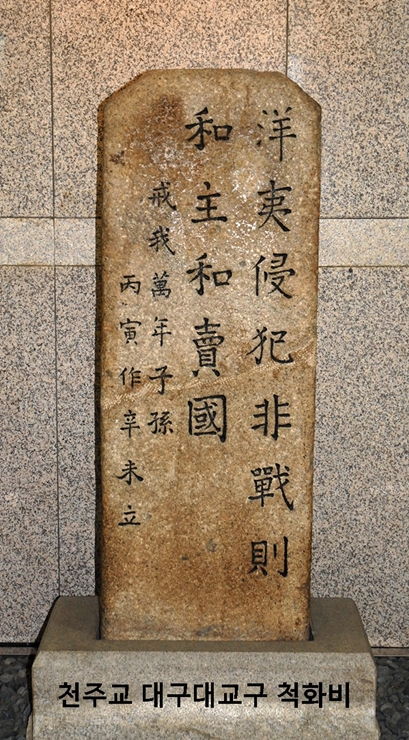 洋夷侵犯非戰則
和主和賣國
戒我萬年子孫
丙寅作辛未立
천주교 대구대교구 척화비